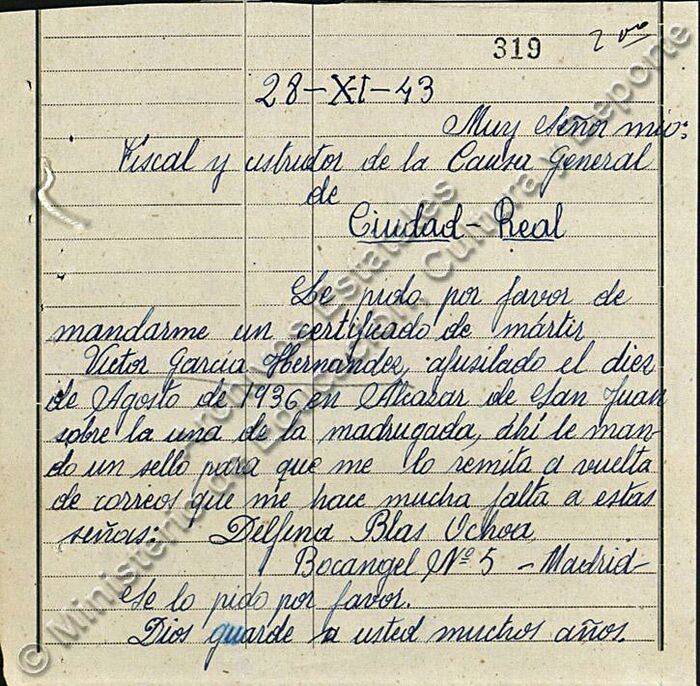 319 2 00
28-XI-43
Muy Señor mio:
Fiscal y ustructor de la Causa General
de
Ciudad-Real
Le pido por favor de
mandarme un certificado de mártir
Victor García Hernandez, afusilado el diez
de Agosto de 1936 en Alcazar de San Juan
sobre la una de la madrugada, dhi le man-
do un sello para que me lo remita a vuelta
de correos que me hace mucha falta a estas
señas: Delfina Blas Ochoa
Bocangel Nº 5 - Madrid-
Se lo pido por favor.
Dios guarde a usted muchos años.
© Ministerio de Educación, Cultura y Deporte
Archivos Estatales